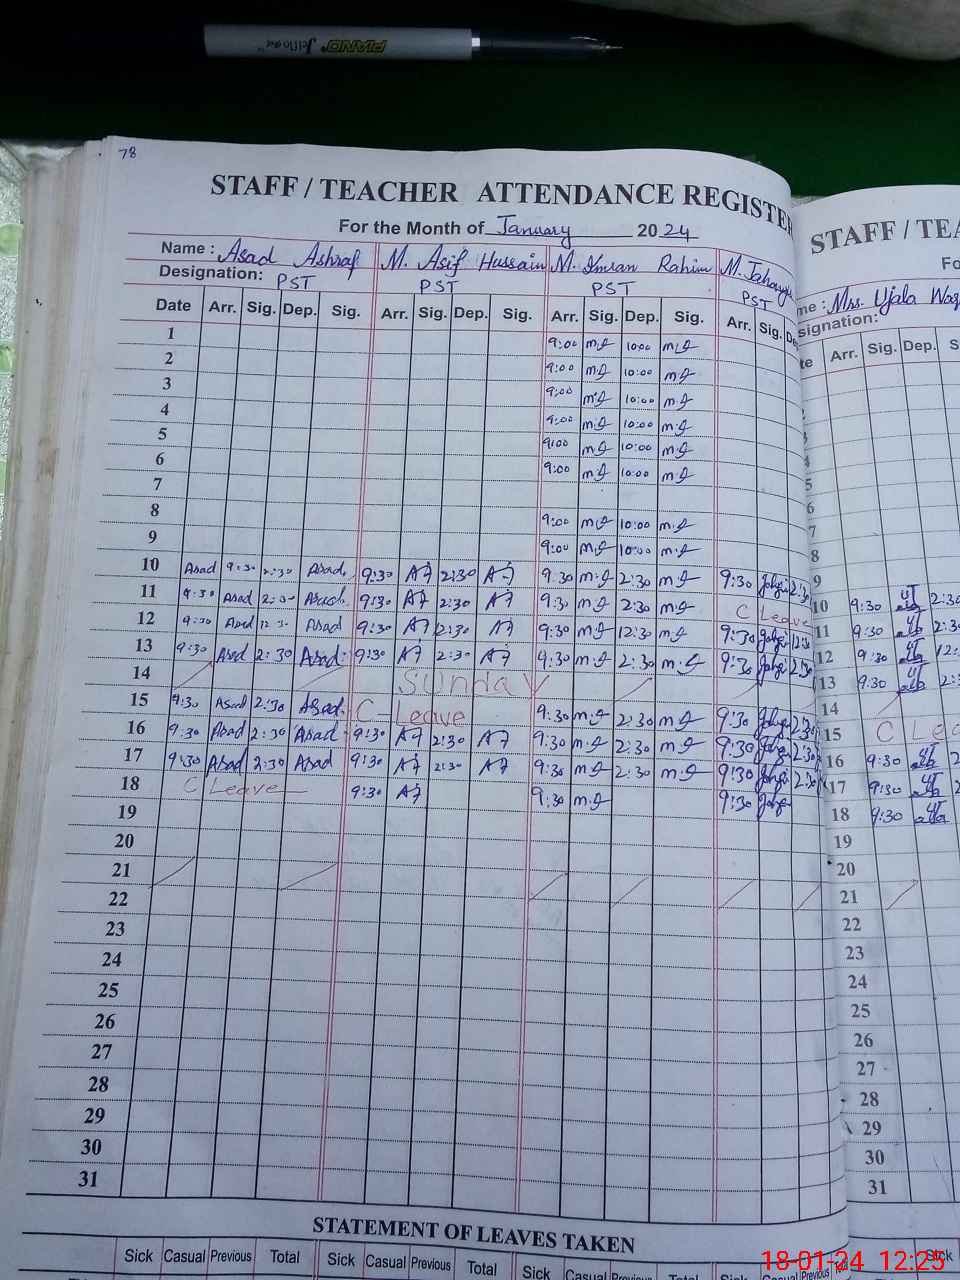 PIANO Jello Gel
78
STAFF / TEACHER ATTENDANCE REGISTER
For the Month of January 2024
Name : Asad Ashraf M. Asif Hussain M. Imran Rahim M. Jahangir
Designation: PST PST PST PST
Date Arr. Sig. Dep. Sig. Arr. Sig. Dep. Sig. Arr. Sig. Dep. Sig. Arr. Sig. De
1 9:00 m.I 10:00 m.I
2 9:00 m.I 10:00 m.I
3 9:00 m.I 10:00 m.I
4 9:00 m.I 10:00 m.I
5 9:00 m.I 10:00 m.I
6 9:00 m.I 10:00 m.I
7
8 9:00 m.I 10:00 m.I
9 9:00 m.I 10:00 m.I
10 Asad 9:30 2:30 Asad 9:30 A7 2:30 A7 9:30 m.I 2:30 m.I 9:30 2:30
11 9:30 Asad 2:30 Asad 9:30 A7 2:30 A7 9:30 m.I 2:30 m.I C Leave
12 9:30 Asad 12:30 Asad 9:30 A7 12:30 A7 9:30 m.I 12:30 m.I 9:30 12:30
13 9:30 Asad 2:30 Asad 9:30 A7 2:30 A7 9:30 m.I 2:30 m.I 9:30 2:30
14 Sunday
15 9:30 Asad 2:30 Asad C-Leave 9:30 m.I 2:30 m.I 9:30 2:30
16 9:30 Asad 2:30 Asad 9:30 A7 2:30 A7 9:30 m.I 2:30 m.I 9:30 2:30
17 9:30 Asad 2:30 Asad 9:30 A7 2:30 A7 9:30 m.I 2:30 m.I 9:30 2:30
18 C Leave 9:30 A7 9:30 m.I 9:30
19
20
21
22
23
24
25
26
27
28
29
30
31
STATEMENT OF LEAVES TAKEN
Sick Casual Previous Total Sick Casual Previous Total Sick Casual Previous Total Sick Casual Previous
STAFF / TEA
Fo
me : Mrs. Ujala Waq
signation:
te Arr. Sig. Dep. S
5
6
7
8
9
10 9:30 2:30
11 9:30 2:30
12 9:30 12:
13 9:30 2:
14
15 C Lea
16 9:30 2
17 9:30 2
18 9:30
19
20
21
22
23
24
25
26
27
28
29
30
31
Sick
18-01-24 12:25